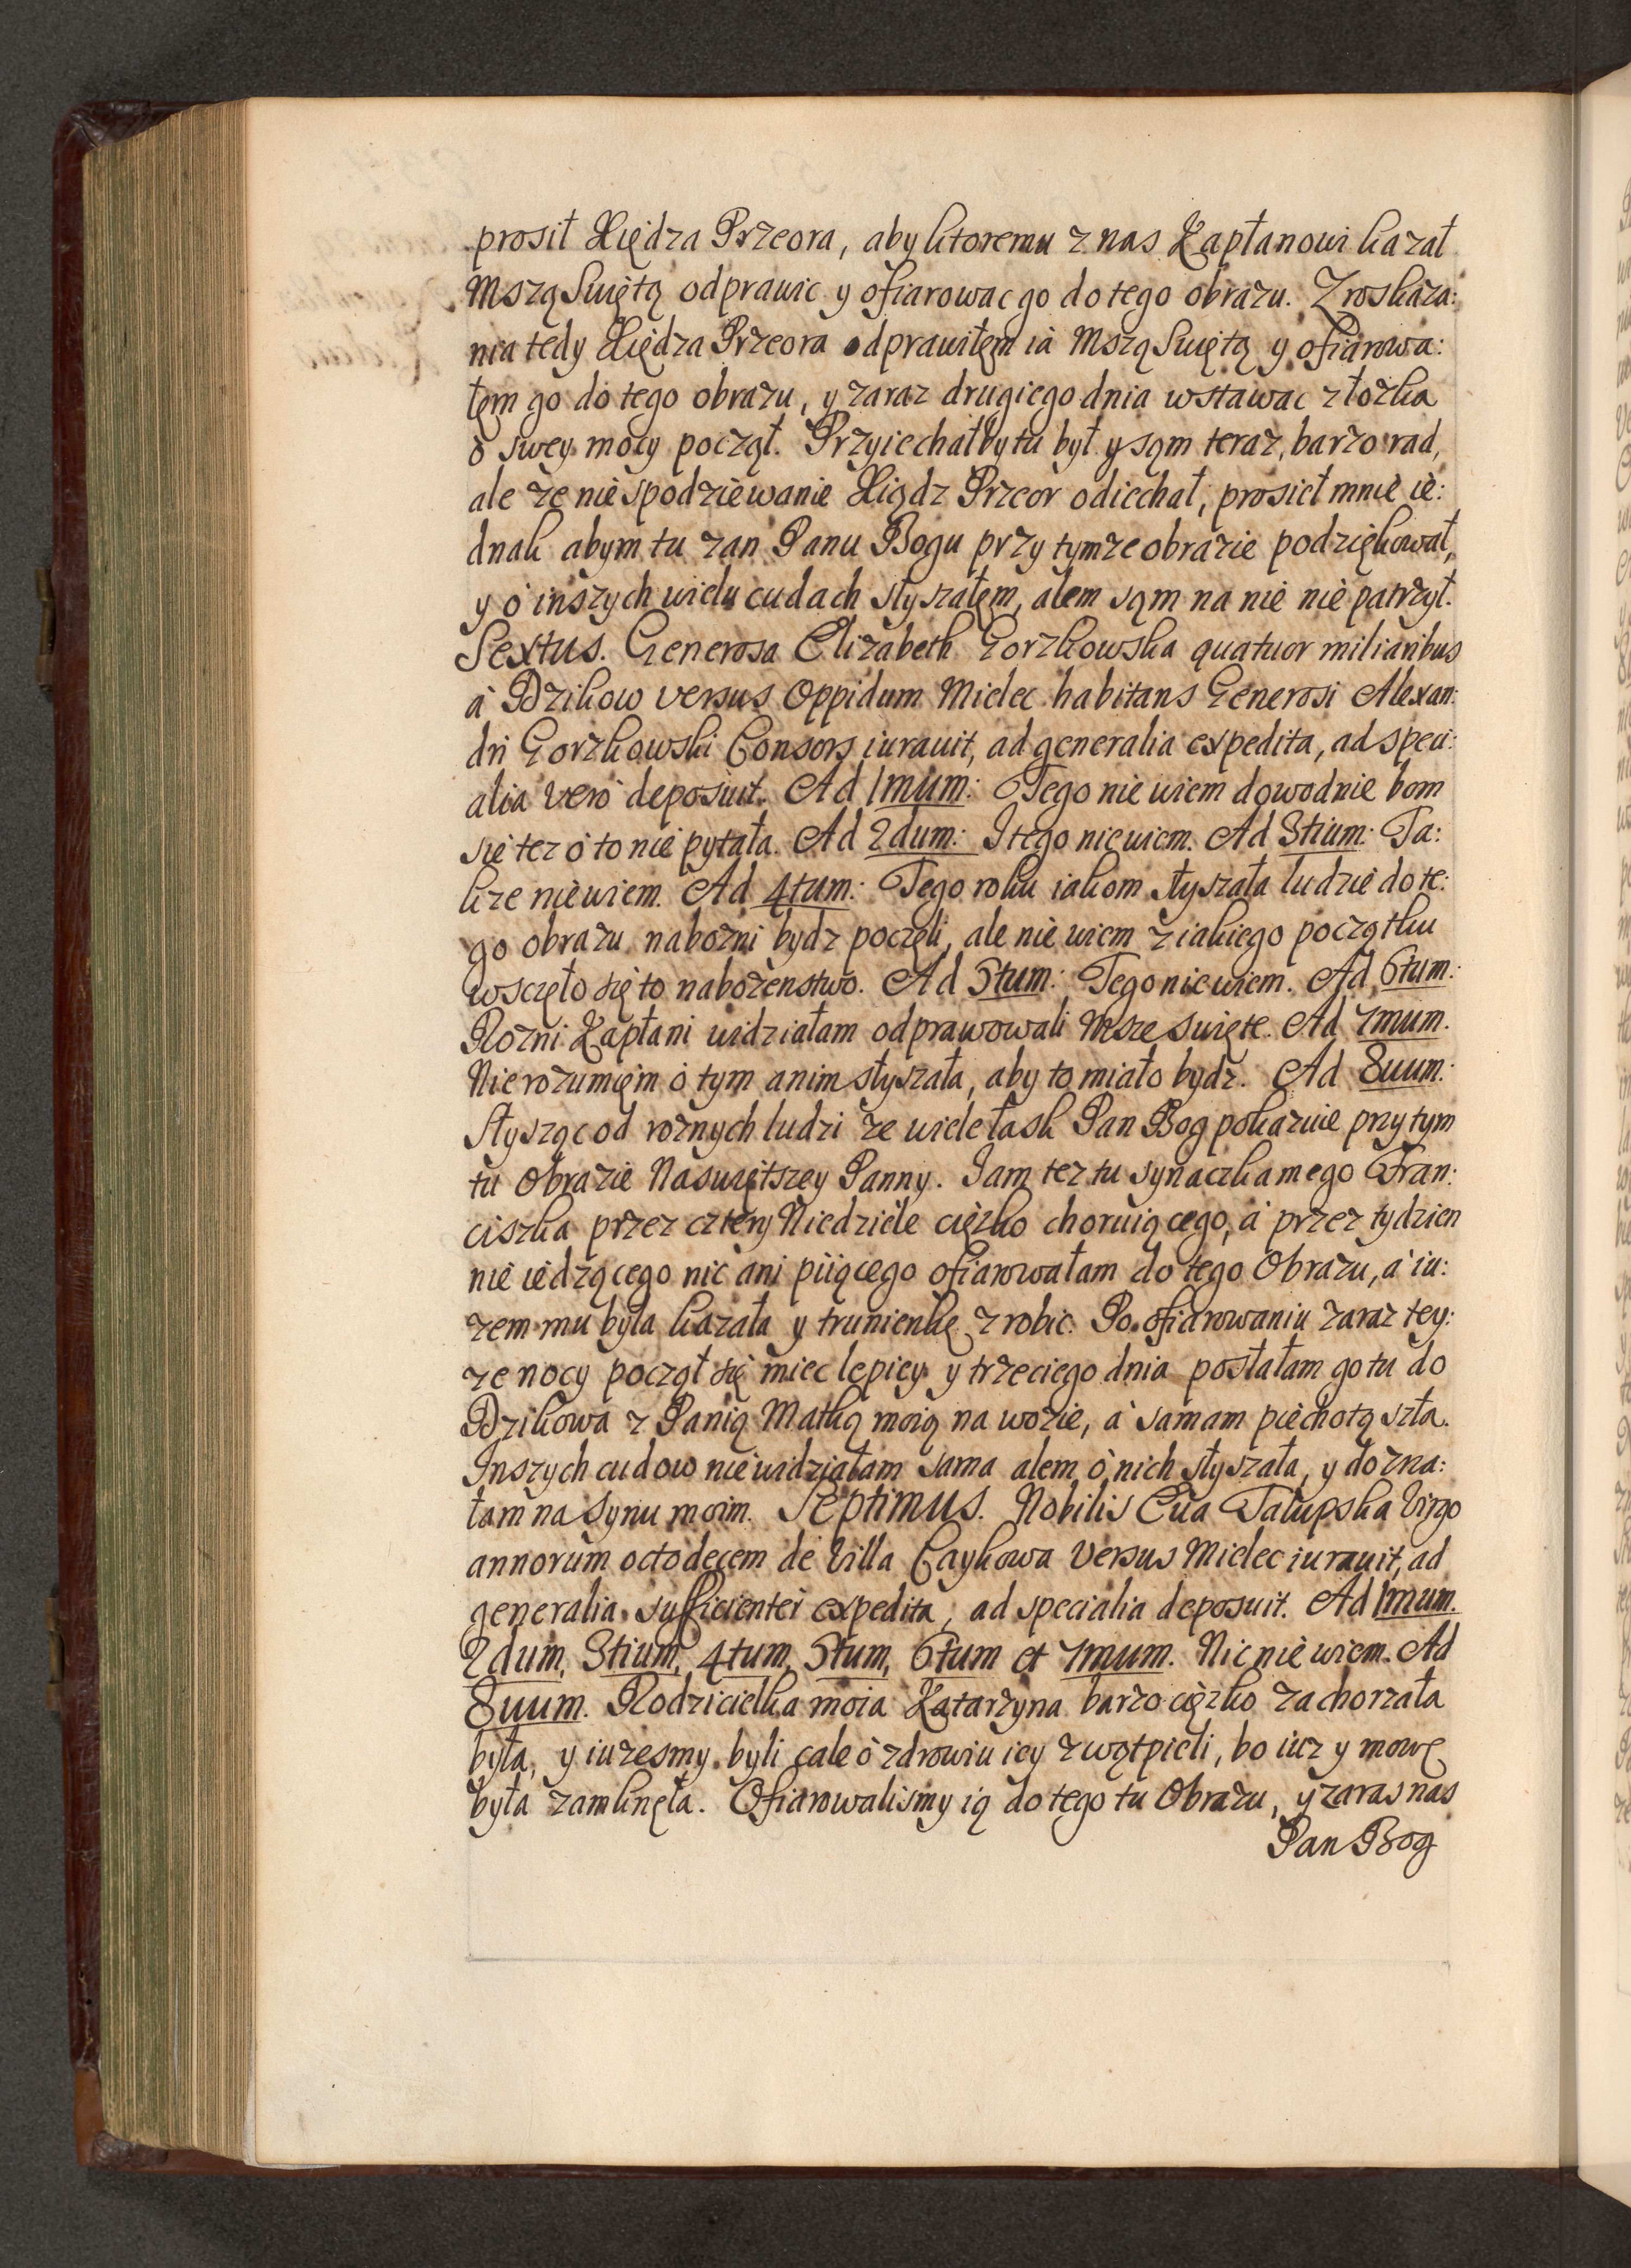 prosił Xiędza Przeora, aby ktoremu z nas Kapłanowi kazał
Mszą Swiętą odprawic y ofiarowac go do tego obrazu. Z roskaza:
nia tedy Xiędza Przeora odprawiłęm ia Mszą Swiętą y ofiarowa:
łęm go do tego obrazu, y zaraz drugiego dnia wstawac z łożka
o swey mocy począł. Przyiechałby tu był y sąm teraz, barzo rad,
ale że niespodziewanie Xiądz Przeor odiechał, prosieł mnie ie:
dnak abym tu zan Panu Bogu przy tymże obrazie podziękował,
y ò inszych wielu cudach słyszałęm, alem sąm na nie nie patrzył.
Sextus. Generosa Elizabeth Gorzkowska quatuor miliaribus
à Dzikow versus Oppidum Mielec habitans Generosi Alexan:
dri Gorzkowski Consors iurauit, ad generalia expedita, ad speci:
alia verò deposuit. Ad 1mum: Tego nie wiem dowodnie bom
się tez ò to nie pytała. Ad 2dum: I tego nie wiem. Ad 3tium: Ta:
kze nie wiem. Ad 4tum: Tego roku iakom słyszała ludzie do te:
go obrazu nabożni bydz poczęli, ale nie wiem z iakiego początku
wsczęło się to nabożenstwo. Ad 5tum: Tego nie wiem. Ad 6tum:
Rożni Kapłani widziałam odprawowali Msze swięte. Ad 7mum.
Nie rozumięm ò tym anim słyszała, aby to miało bydz. Ad 8uum:
Słysząc od rożnych ludzi że wiele łask Pan Bog pokazuie przy tym
tu Obrazie Naswiętszey Panny. Iam tez tu synaczka mego Fran:
ciszka przez cztery Niedziele cięzko choruiącego, à przez tydzien
nie iedzącego nic ani piiącego ofiarowałam do tego Obrazu, à iu:
zem mu była kazała y trunienkę zrobic. Po ofiarowaniu zaraz tey:
że nocy począł się miec lepiey y trzeciego dnia posłałam go tu do
Dzikowa z Panią Matką moią na wozie, à samam piechotą szła.
Inszych cudow nie widziałam sama alem ò nich słyszała, y dozna:
łam na synu moim. Septimus. Nobilis Eua Tałupska Virgo
annorum octodecem de Villa Caykowa versus Mielec iurauit, ad
generalia sufficienter expedita, ad specialia deposuit. Ad 1mum.
2dum, 3tium, 4tum, 5tum, 6tum et 7mum. Nic nie wiem. Ad
8uum. Rodzicielka moia Katarzyna barzo cięzko zachorzała
była, y iuzesmy byli cale ò zdrowiu iey zwątpieli, bo iuz y mowę
była zamknęła. Ofiarowalismy ią do tego tu Obrazu, y zaras nas
Pan Bog